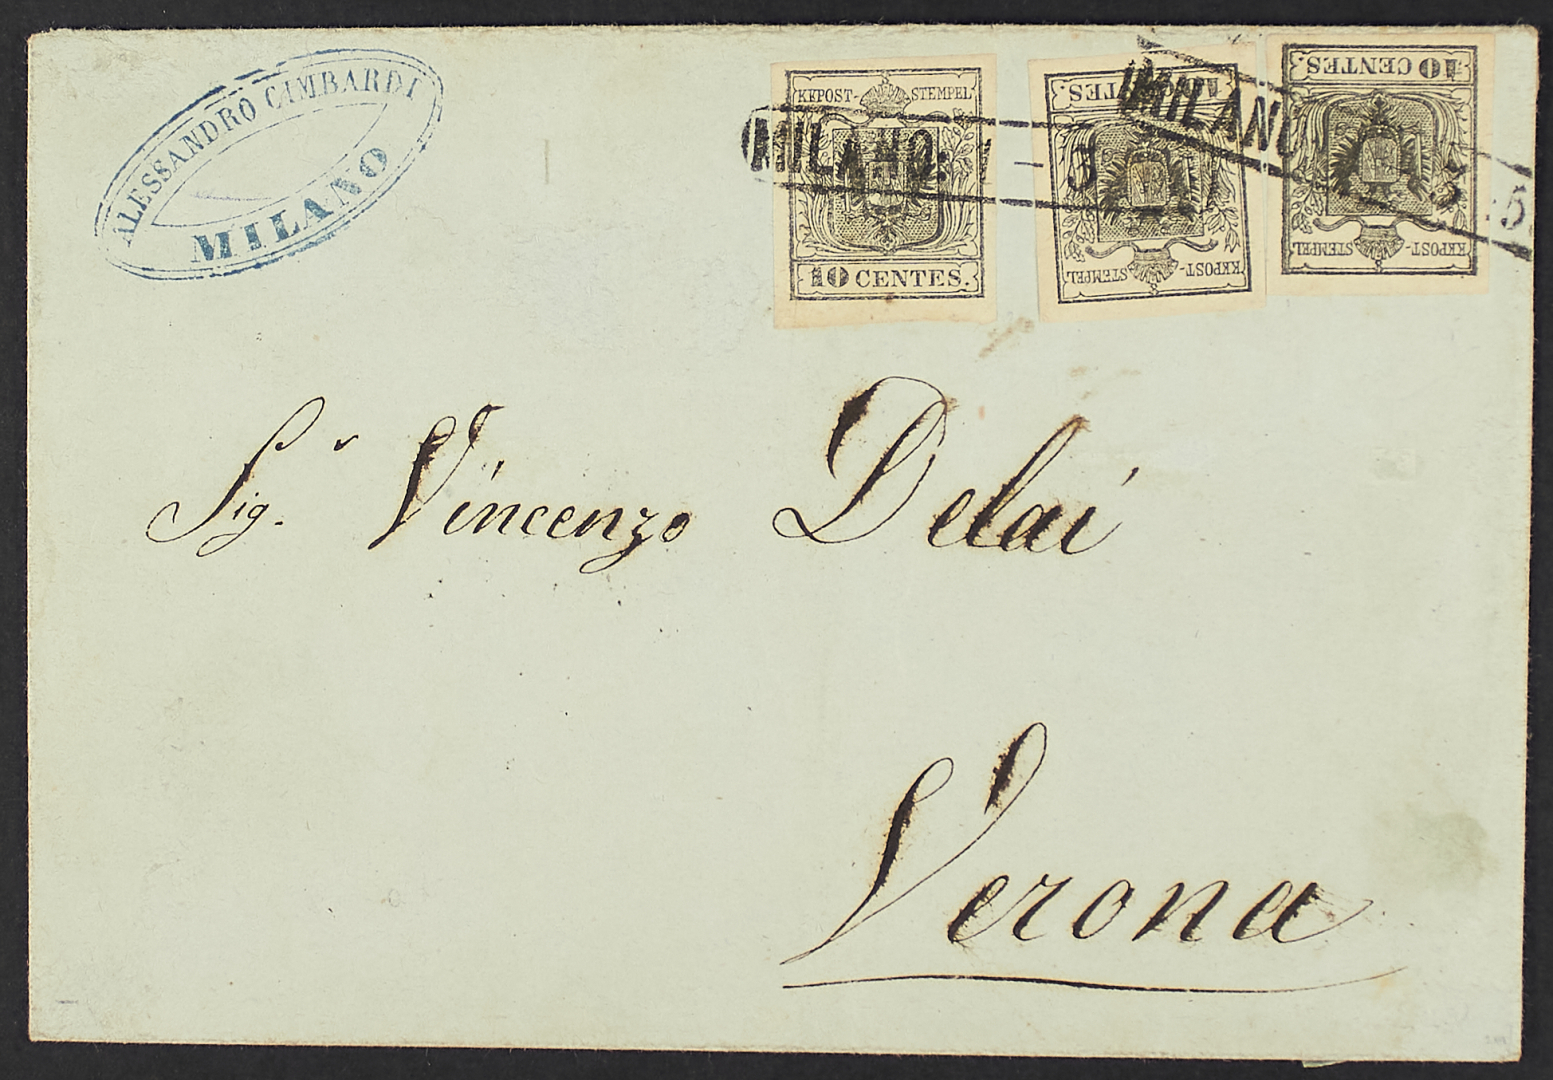 ALESSANDRO CIMBARDI
MILANO
KKPOST-STEMPEL
10 CENTES.
CENTES.
KKPOST-STEMPEL
10 CENTES.
KKPOST-STEMPEL
MILANO
MILANO
Sig.r Vincenzo Delai
Verona